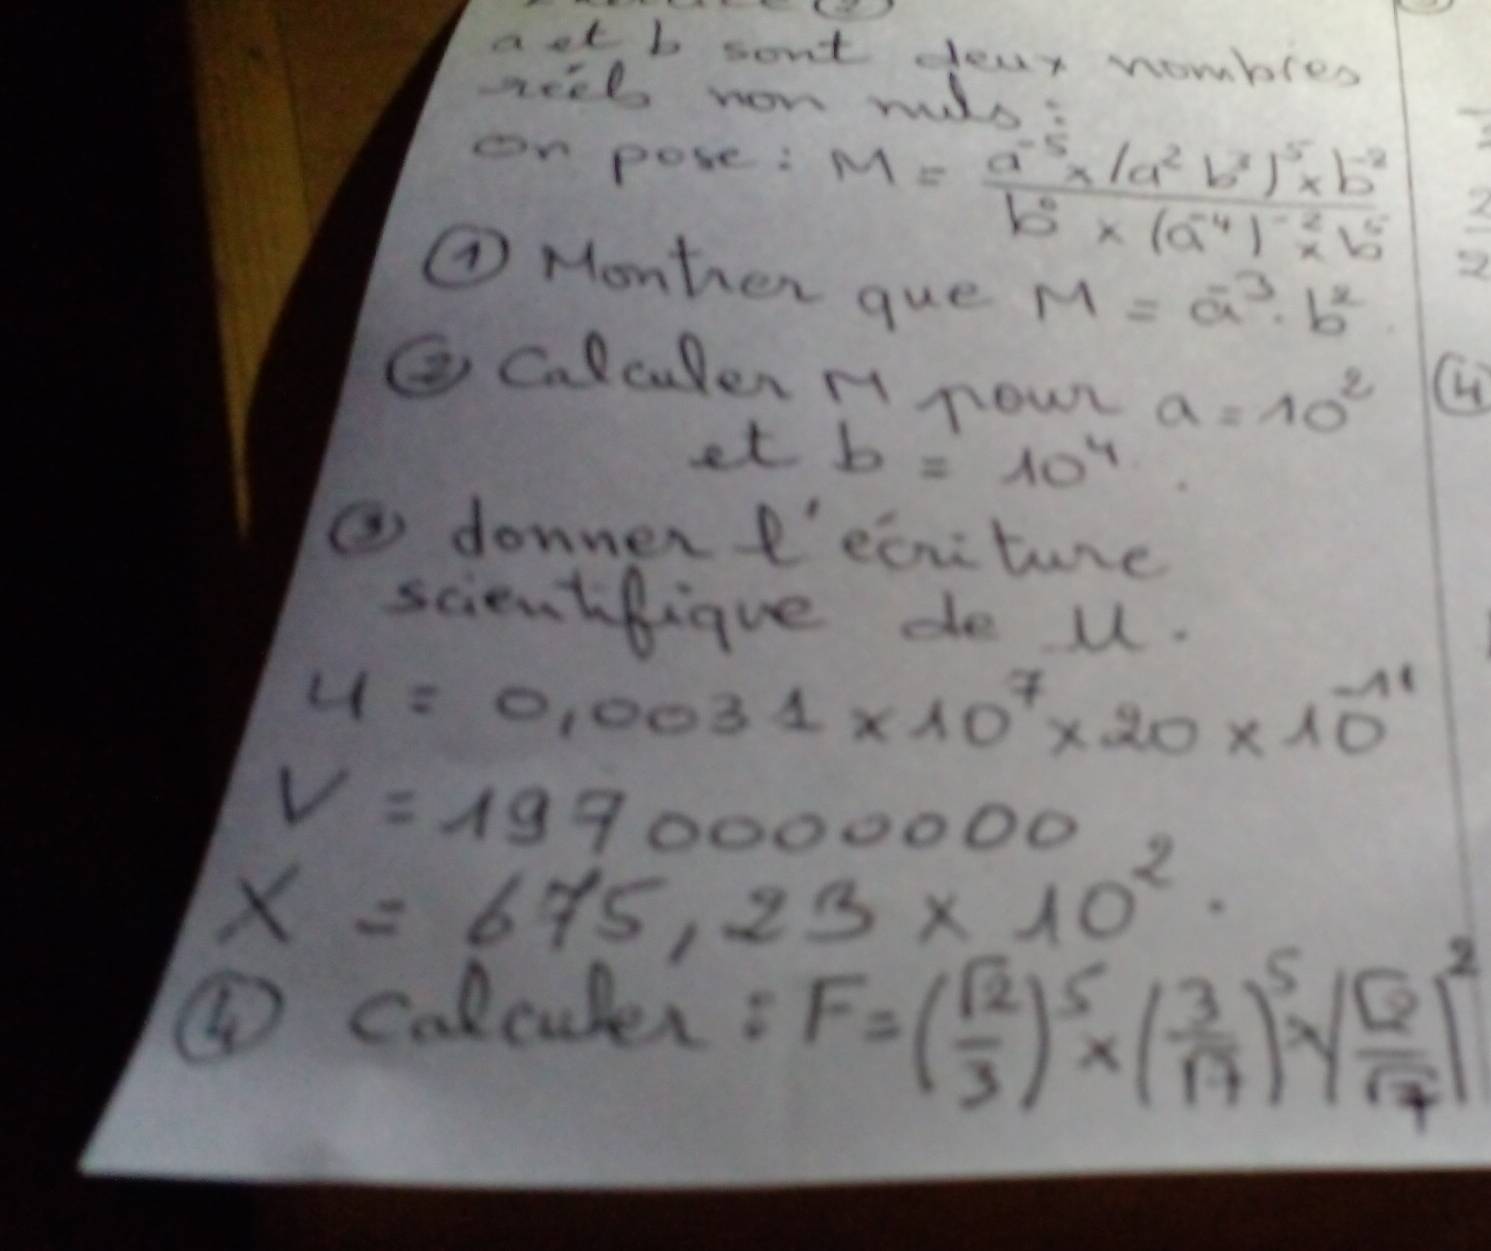 a et b sont deux nombres
réels non nuls :
on pose : M = a⁻⁵ × (a² b²)⁵ × b⁻² / b × (a⁻⁴)⁻² × b⁵
① Montrer que M = a⁻³ . b².
② Calculer M pour a = 10²
et b = 10⁴.
③ donner l'écriture
scientifique de U.
U = 0,0031 × 10⁷ × 20 × 10⁻¹¹
V = 1970000000
X = 675,23 × 10².
④ Calculer : F = (√2/3)⁵ × (3/√7)⁵ × (√2/√7)²
④